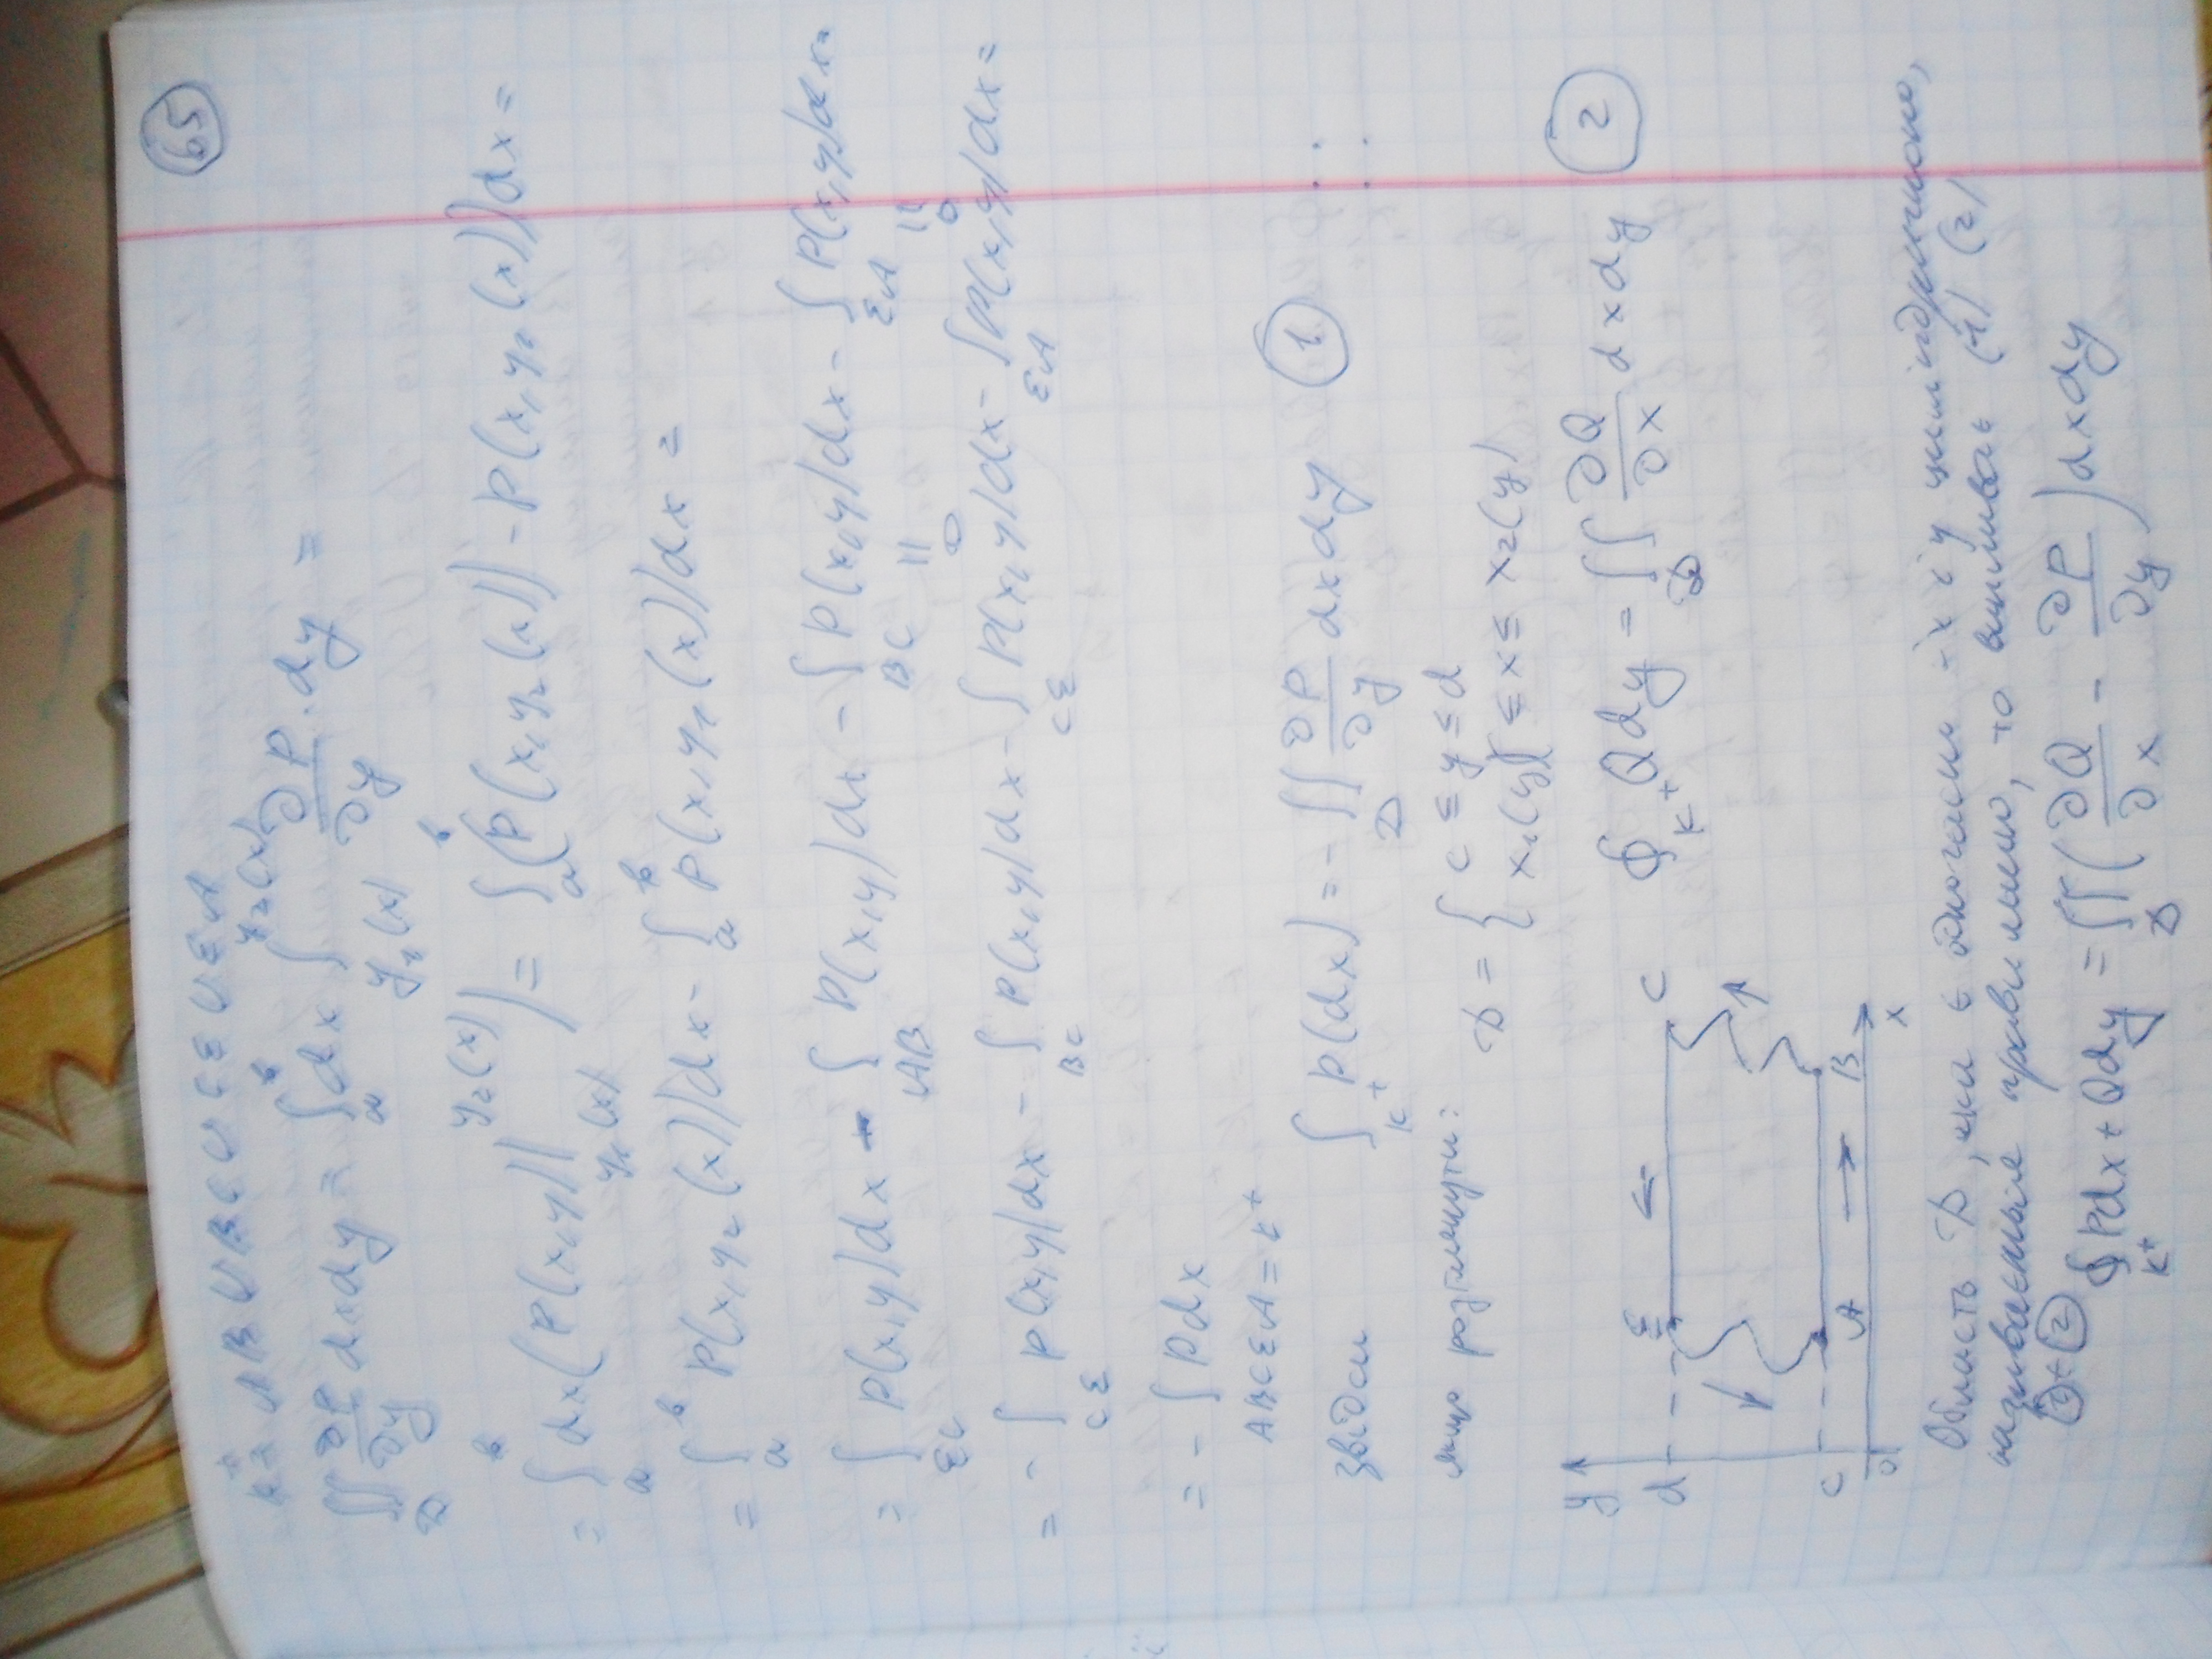 65
K⁺ = AB ∪ BC ∪ CE ∪ EA
∬_D ∂P/∂y dxdy = ∫_a^b dx ∫_{y₁(x)}^{y₂(x)} ∂P/∂y · dy =
= ∫_a^b dx (P(x,y)|_{y₁(x)}^{y₂(x)}) = ∫_a^b (P(x,y₂(x)) - P(x,y₁(x)) dx =
= ∫_a^b P(x,y₂(x)) dx - ∫_a^b P(x,y₁(x)) dx =
= ∫_{EC} P(x,y) dx - ∫_{AB} P(x,y) dx - ∫_{BC} P(x,y) dx - ∫_{EA} P(x,y) dx =
|| 0 || 0
= - ∫_{CE} P(x,y) dx - ∫_{BC} P(x,y) dx - ∫_{CE} P(x,y) dx - ∫_{EA} P(x,y) dx =
= - ∫_{ABCEA = K⁺} P dx
звідси ∫_{K⁺} P(dx) = - ∬_D ∂P/∂y dxdy (1)
якщо розглянути: D = { c ≤ y ≤ d
x₁(y) ≤ x ≤ x₂(y)
y d E C
∮_{K⁺} Q dy = ∬_D ∂Q/∂x dxdy (2)
c A B
0 x
Область D, яка є одночасно і x і y циліндричною,
називається правильною, то випливає (1) (2)
(1)+(2) ∮_{K⁺} Pdx + Qdy = ∬_D (∂Q/∂x - ∂P/∂y) dxdy